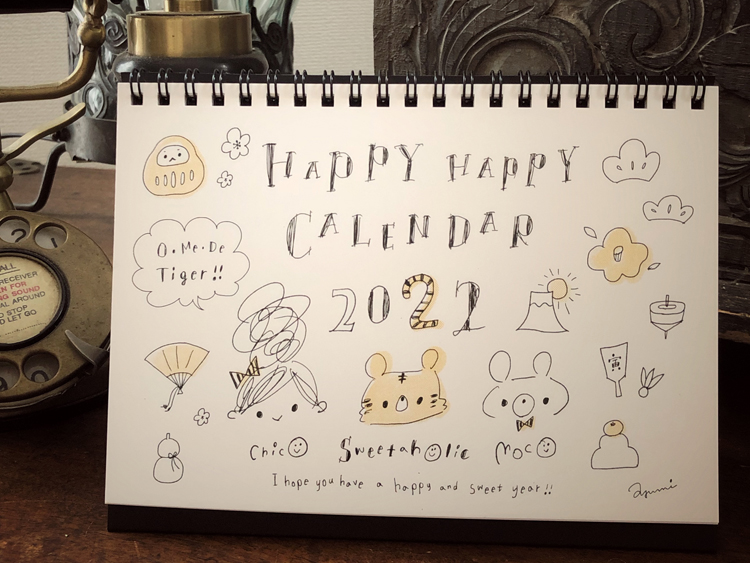 HAPPY HAPPY
CALENDAR
2022
O・Me・De
Tiger!!
寅
Chico
Sweetaholic
Moco
I hope you have a happy and sweet year!!
ALL
RECEIVER
FOR
SOUND
AROUND
STOP
LET GO